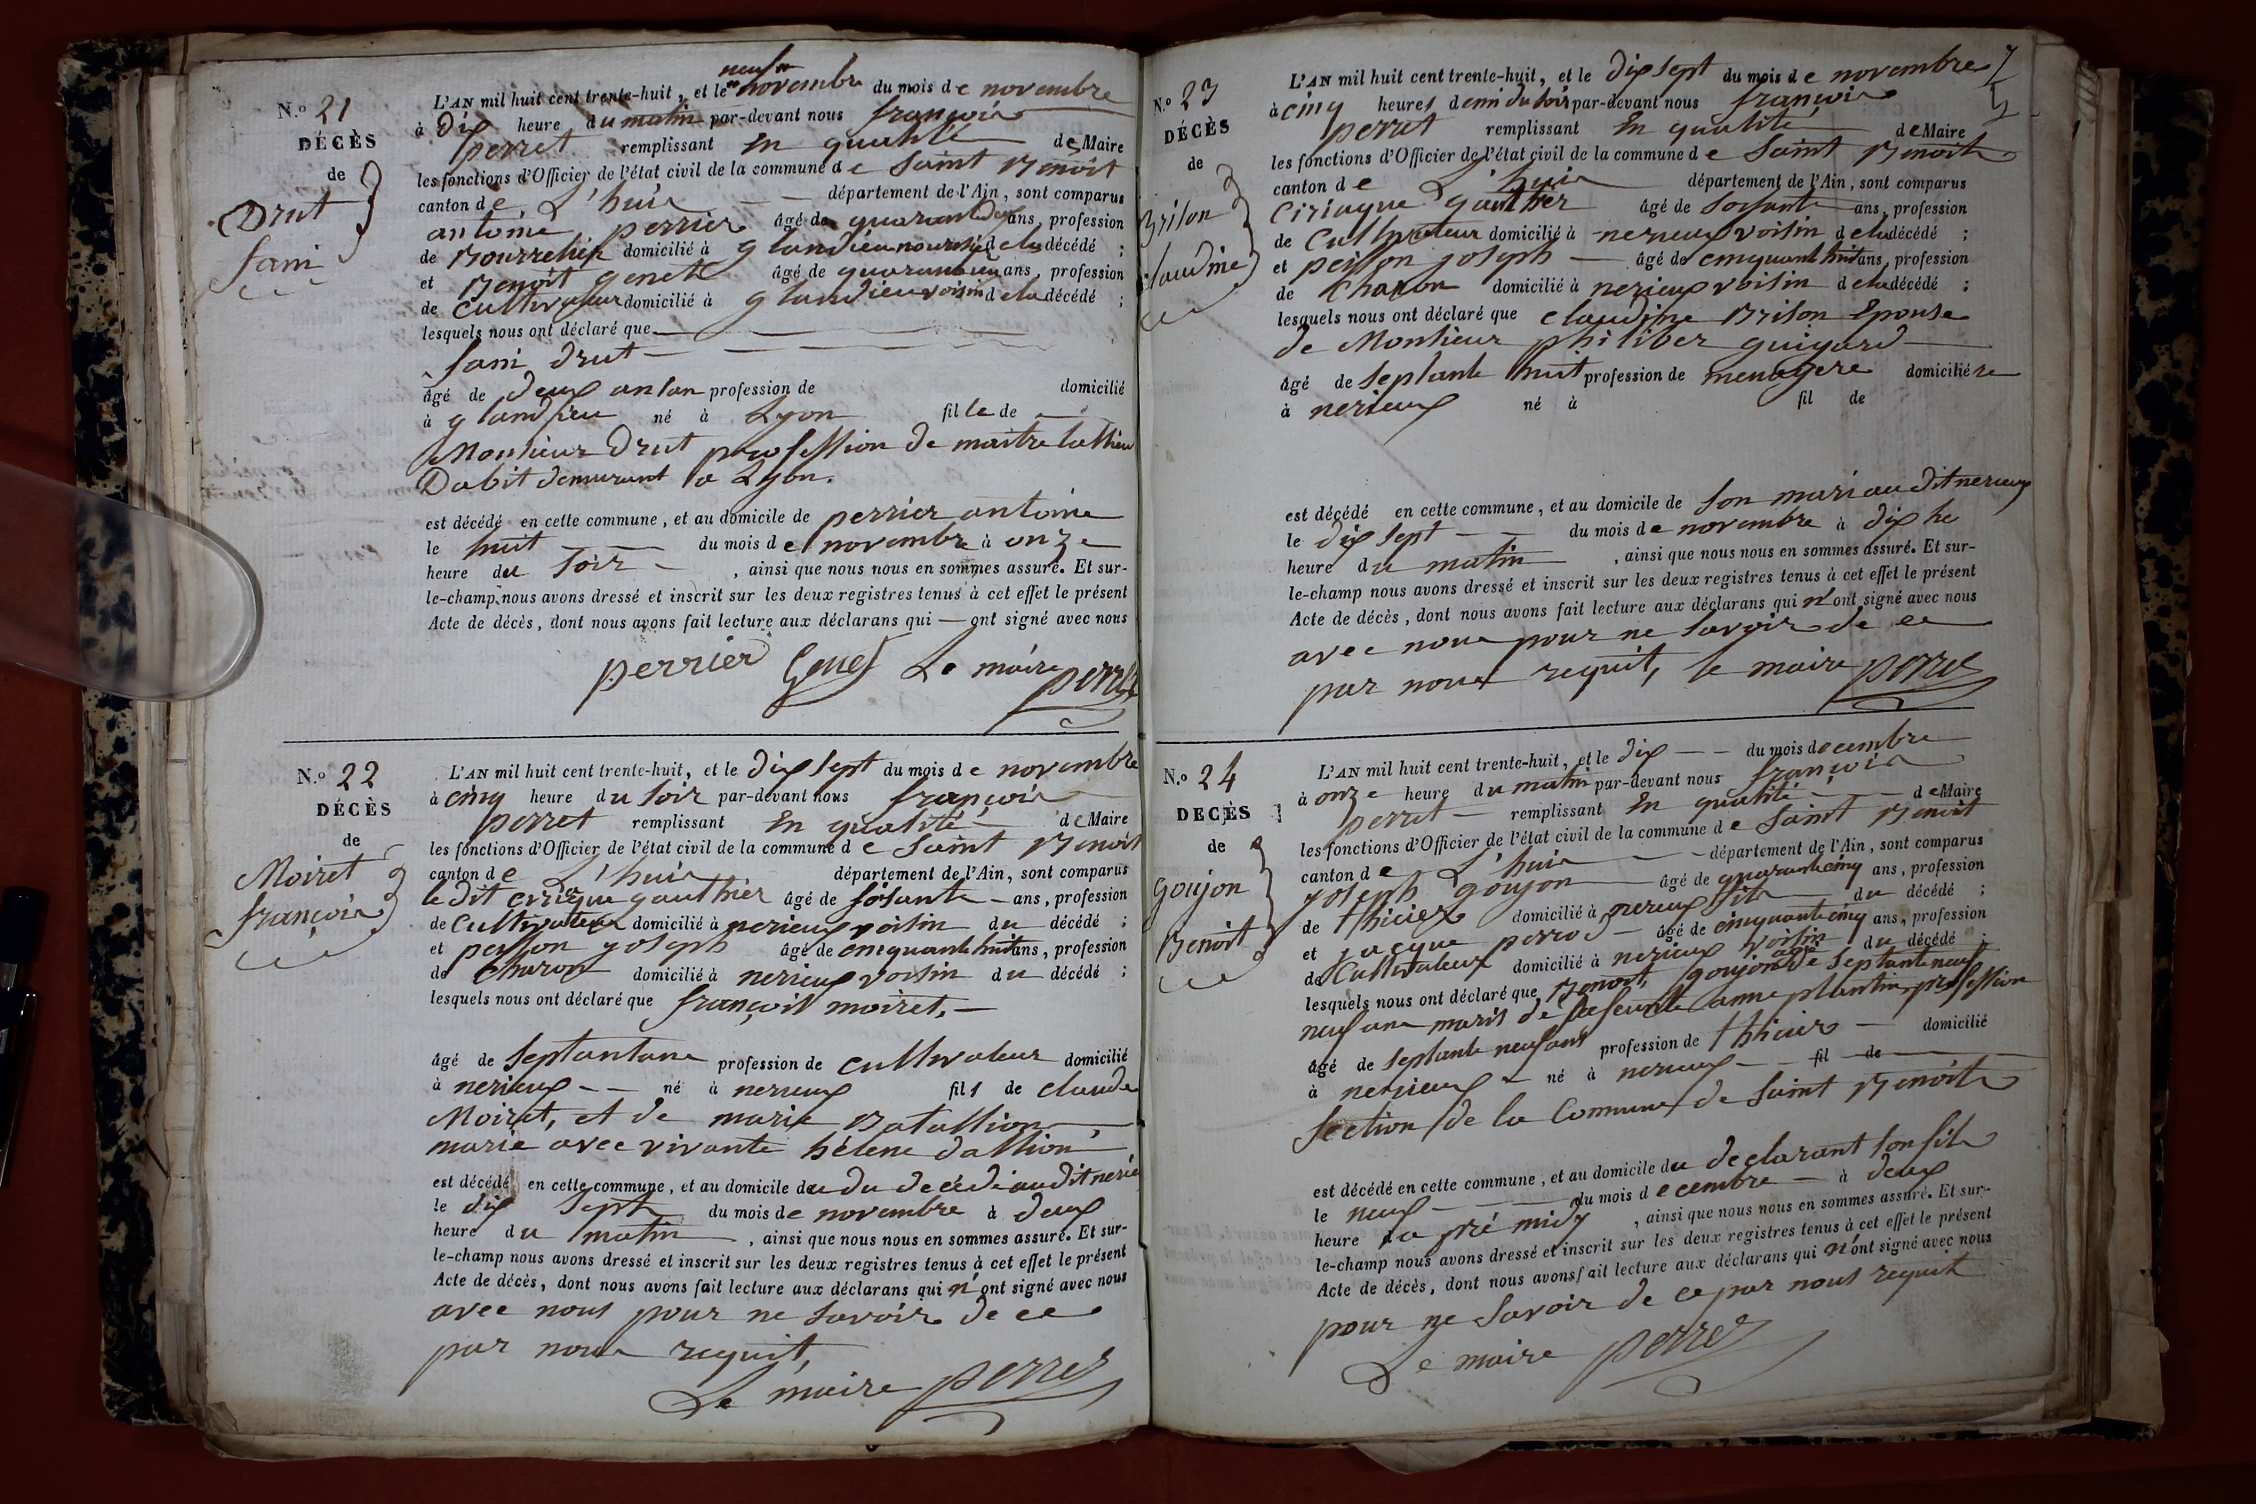 N.o 21
DÉCÈS
de
Drut
fani
L'AN mil huit cent trente-huit, et le neuf novembre du mois de novembre
à dix heure du matin par-devant nous françois
perret remplissant En qualité de Maire
les fonctions d'Officier de l'état civil de la commune de Saint Benoit
canton de L'huis département de l'Ain, sont comparus
antoine perrier âgé de ans, profession
de Bourrelier domicilié à glandieu décédé ;
et Benoit genet âgé de ans, profession
de Cultivateur domicilié à glandieu voisin de la décédé ;
lesquels nous ont déclaré que
fani drut
âgé de deux an profession de domicilié
à glandieu né à Lyon fille de
Monsieur Drut profession de maitre
Dabit demurant a Lyon.
est décédé en cette commune, et au domicile de perrier antoine
le huit du mois de novembre à onze
heure du soir, ainsi que nous nous en sommes assuré. Et sur-
le-champ nous avons dressé et inscrit sur les deux registres tenus à cet effet le présent
Acte de décès, dont nous avons fait lecture aux déclarans qui — ont signé avec nous
perrier Genet Le maire perret
N.o 22
DÉCÈS
de
Moiret
françois
L'AN mil huit cent trente-huit, et le dix sept du mois de novembre
à cinq heure du soir par-devant nous françois
perret remplissant En qualité de Maire
les fonctions d'Officier de l'état civil de la commune de Saint Benoit
canton de L'huis département de l'Ain, sont comparus
le dit ciriaque gauthier âgé de soisante ans, profession
de Cultivateur domicilié à nerieux voisin du décédé ;
et joseph âgé de cinquante huit ans, profession
de Charon domicilié à nerieux voisin du décédé ;
lesquels nous ont déclaré que françois moiret,
âgé de profession de cultivateur domicilié
à nerieux né à nerieux fils de claude
Moiret, et de marie
marie avec vivante hélene
est décédé en cette commune, et au domicile du du decédé audit nerie
le dix sept du mois de novembre à deux
heure du matin, ainsi que nous nous en sommes assuré. Et sur-
le-champ nous avons dressé et inscrit sur les deux registres tenus à cet effet le présent
Acte de décès, dont nous avons fait lecture aux déclarans qui n'ont signé avec nous
avec nous pour ne savoir de ce
par nous requit,
Le maire perret
N.o 23
DÉCÈS
de
Brison
claudine
L'AN mil huit cent trente-huit, et le dix sept du mois de novembre
à cinq heures demi du soir par-devant nous françois
perret remplissant En qualité de Maire
les fonctions d'Officier de l'état civil de la commune de Saint Benoit
canton de L'huis département de l'Ain, sont comparus
Ciriaque gauthier âgé de soisante ans, profession
de Cultivateur domicilié à nerieux voisin de la décédé ;
et joseph âgé de cinquante huit ans, profession
de Charon domicilié à nerieux voisin de la décédé ;
lesquels nous ont déclaré que claudine Brison Epouse
de Monsieur philiber guigard
âgé de septante huit profession de menagere domiciliére
à nerieux né à fil de
est décédé en cette commune, et au domicile de son mari au dit nerieux
le dix sept du mois de novembre à dix he
heure du matin, ainsi que nous nous en sommes assuré. Et sur-
le-champ nous avons dressé et inscrit sur les deux registres tenus à cet effet le présent
Acte de décès, dont nous avons fait lecture aux déclarans qui n'ont signé avec nous
avec nous pour ne savoir de ce
par nous requit, le maire perret
N.o 24
DÉCÈS
de
goujon
Benoit
L'AN mil huit cent trente-huit, et le dix du mois decembre
à onze heure du matin par-devant nous françois
perret remplissant En qualité de Maire
les fonctions d'Officier de l'état civil de la commune de Saint Benoit
canton de L'huis département de l'Ain, sont comparus
joseph goujon âgé de quarante cinq ans, profession
de domicilié à nerieux fils du décédé ;
et jacque âgé de cinquante cinq ans, profession
de Cultivateur domicilié à nerieux voisin du décédé
lesquels nous ont déclaré que Benoit, goujon agé de septante neuf
neuf ans maris de anne plantin, profession
âgé de septante neuf ans profession de domicilié
à nerieux né à nerieux fil de
section de la Commune de Saint Benoit
est décédé en cette commune, et au domicile du declarant son fils
le neuf du mois decembre à deux
heure midy, ainsi que nous nous en sommes assuré. Et sur-
le-champ nous avons dressé et inscrit sur les deux registres tenus à cet effet le présent
Acte de décès, dont nous avons fait lecture aux déclarans qui n'ont signé avec nous
pour ne savoir de ce par nous requit
Le maire perret